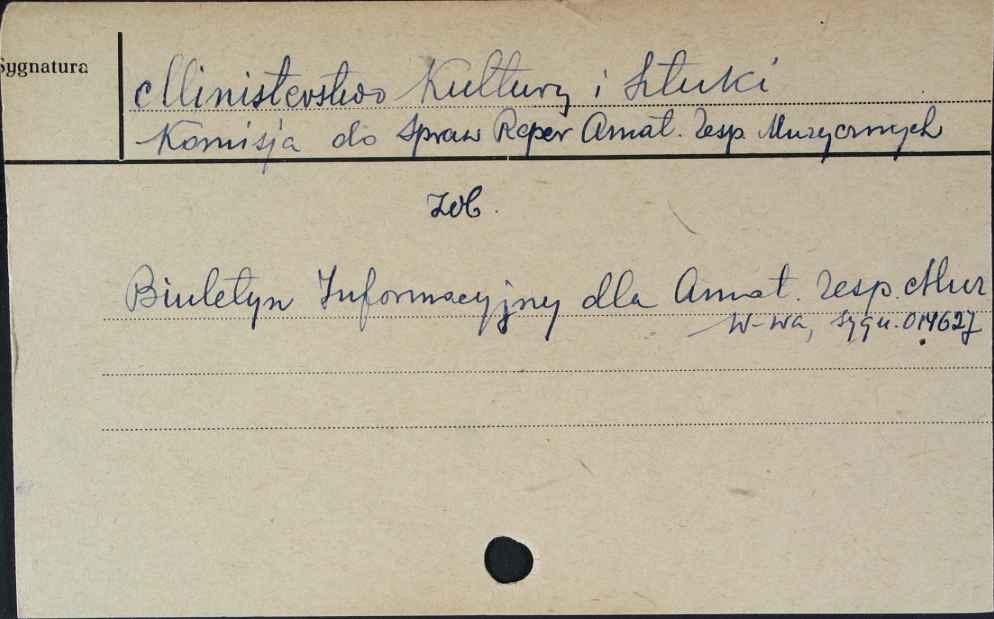 Sygnatura
Ministerstwo Kultury i Sztuki
Komisja do Spraw Reper Amat. Zesp. Muzycznych
Zob.
Biuletyn Informacyjny dla Amat. Zesp. Muz
W-wa, Sygn. 014627